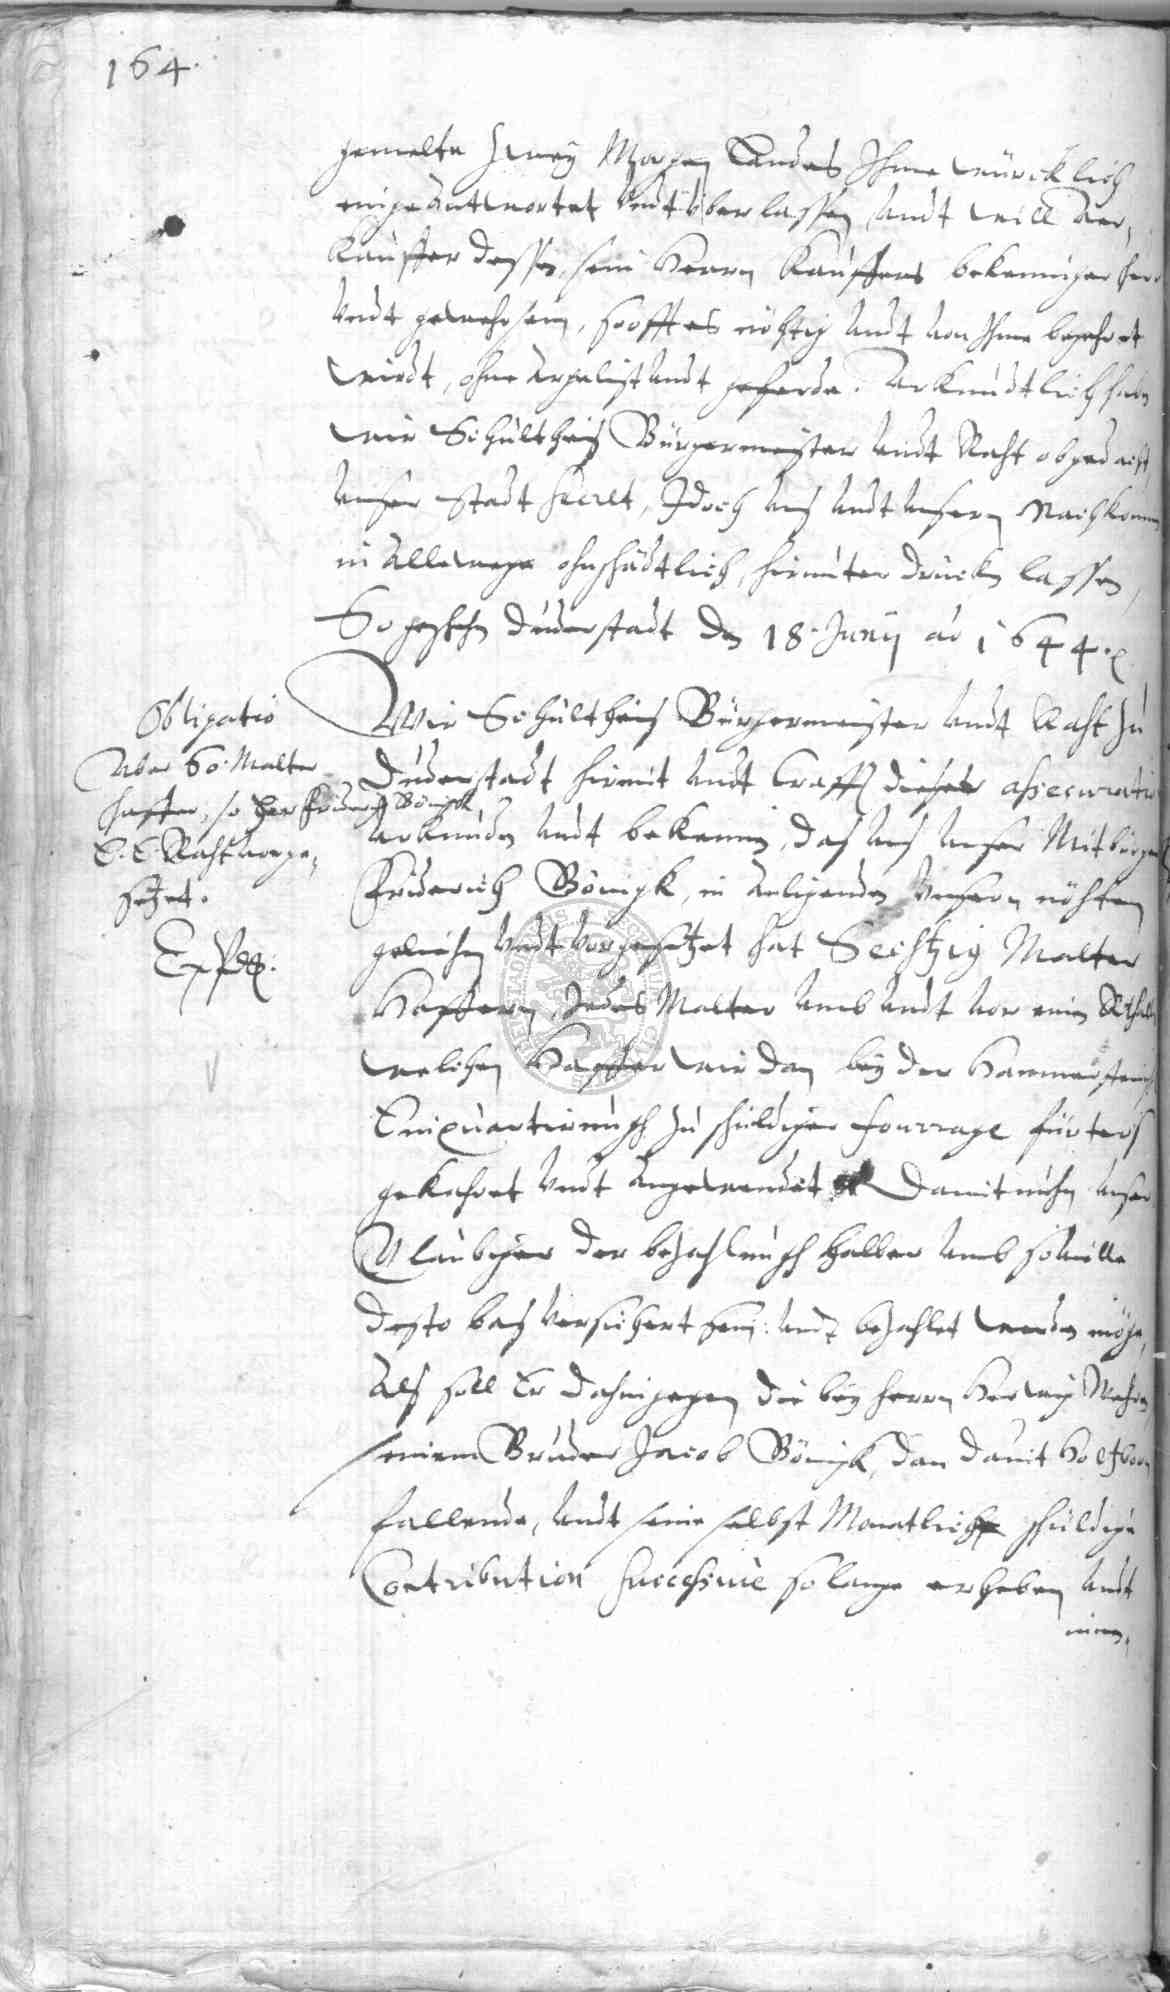 164.
gemelte zwey Morgen Landes Ihme würcklich
eingeantwortet undt überlassen, undt will Ver,
kauffer dessen, sein Herrn Kauffers bekenniger herr
undt gewehr sein, so offt es nöhtig undt von Ihme begehret
wirdt, ohne Argelist undt geferde. Uhrkundtlich haben
wir Schultheis Bürgermeister undt Raht obgedacht
unser Stadt Secret, Idoch uns undt unsern Nachkommen
in Allewege ohnschädtlich, hirunter drucken lassen,
So geschehen Duderstadt den 18. Junij ao 1644.
Obligatio
Uber 60. Malter
haffer, so Her Friderich Bönigk
E. E. Raht vorge,
setzet.
Wir Schultheis Bürgermeister undt Raht zu
Duderstadt hirmit undt Crafft dieses assecuratio
uhrkunden undt bekennen, das uns unser Mitbürger
Friderich Bönigk, in anligenden unsern nöhten
geliehen undt vorgesetzet hat Sechtzig Malter
Haffern, Jedes Malter umb undt vor einen Rthaler
welchen Haffer wir dan bey der
Einquartirungh zu schuldiger fourrage
gekehret undt angewendet Damit nuhn unser
Glaubiger der bezahlungh halber umb so viele
desto bas versichert sein: undt bezahlet werden möge,
Als soll Er dahingegen die bey Herrn
seinem Bruder Jacob Bönigk, dan David
fallende, undt seine selbst Monatliche schuldige
Contribution successivè so lange erheben undt